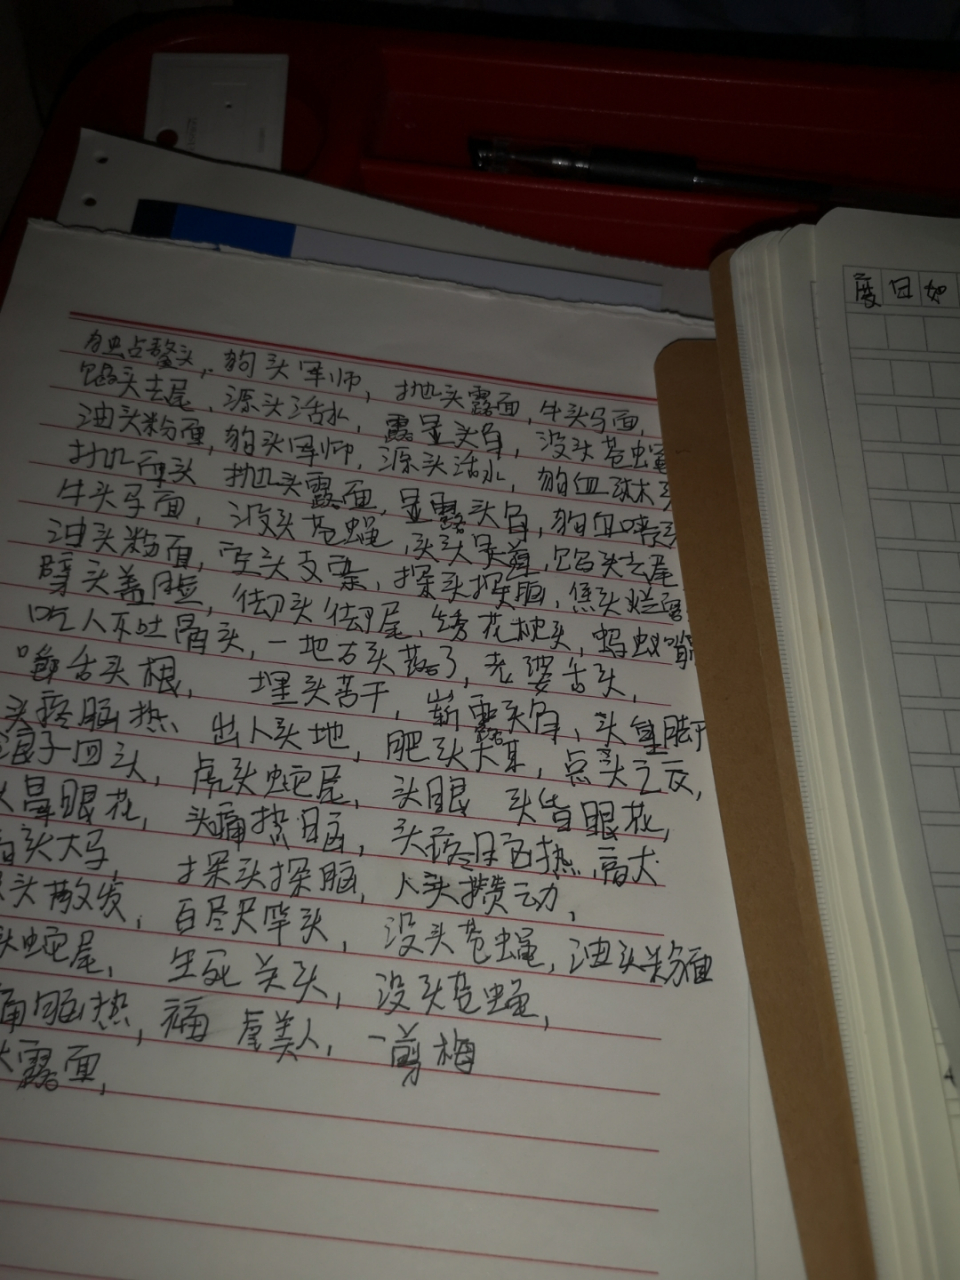 独占鳌头，狗头军师，抛头露面，牛头马面，
掐头去尾，源头活水，露显头角，没头苍蝇
油头粉面，狗头军师，源头活水，狗血淋头
抛頭 抛头露面，显露头角，狗血喷头
牛头马面，没头苍蝇，头头是道，掐头去尾
油头粉面，分头支票，探头探脑，焦头烂额
劈头盖脸，街头街尾，绣花枕头，蚂蚁啃
吃人不吐骨头，一地石头落了，老婆舌头，
嚼舌头根，埋头苦干，崭露头角，头重脚
头疼脑热，出人头地，肥头大耳，点头之交，
浪子回头，虎头蛇尾，头眼 头昏眼花，
头晕眼花，头痛热脑，头疼脑热，高大
高头大马，探头探脑，人头攒动，
头散发，百尽尺竿头，没头苍蝇，油头粉面
头蛇尾，生死关头，没头苍蝇，
痛脑热，福 虞美人，一剪梅
头露面，
度日如